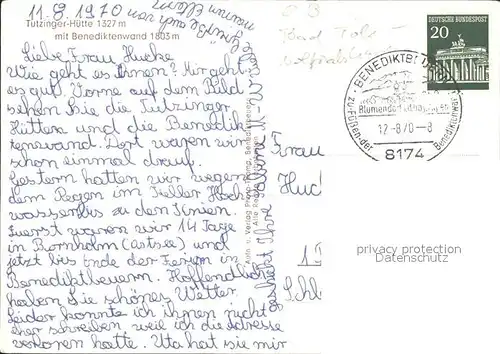 11.8.1970
Tutzinger-Hütte 1327 m
mit Benediktenwand 1803 m
Liebe Frau Hucke
Wie geht es Ihnen? Mir geht
es gut. Vorne auf dem Bild
sehen Sie die Tutzinger
Hütten und die Benedik
tenwand. Dort waren wir
schon einmal drauf.
Gestern hatten wir wegen
dem Regen im Keller Hoch
wasser bis zu den Knien.
Zuerst waren wir 14 Tage
in Bornholm (Ostsee) und
jetzt bis Ende der Ferien in
Benediktbeuern. Hoffendlich
haben Sie schönes Wetter
Leider konnte ich Ihnen nicht
eher schreiben, weil ich die Adresse
verloren hatte. Uta hat sie mir
Grüße auch von
meinen Eltern
Ihre
DEUTSCHE BUNDESPOST
20
BENEDIKTBEUERN
12-8-70-8
8174
zu Füßen der Benediktenwand
Bad Tölz
Wolfratshausen
Frau
Huc
1
Schl
privacy protection
Datenschutz